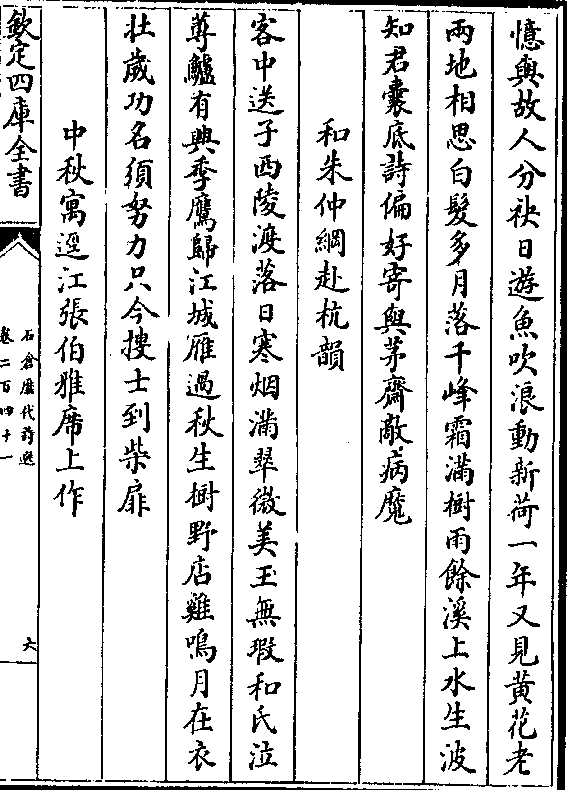 憶與故人分袂日遊魚吹浪動新荷一年又見黃花老
兩地相思白髮多月落千峰霜滿樹雨餘溪上水生波
知君囊底詩偏好寄與茅齋敵病魔
和朱仲綱赴杭韻
客中送子西陵渡落日寒烟滿翠微美玉無瑕和氏泣
蓴鱸有興季鷹歸江城雁過秋生樹野店雞鳴月在衣
壯歲功名須努力只今搜士到柴扉
中秋寓逕江張伯雅席上作
欽定四庫全書
石倉歷代詩選
卷二百四十一
六